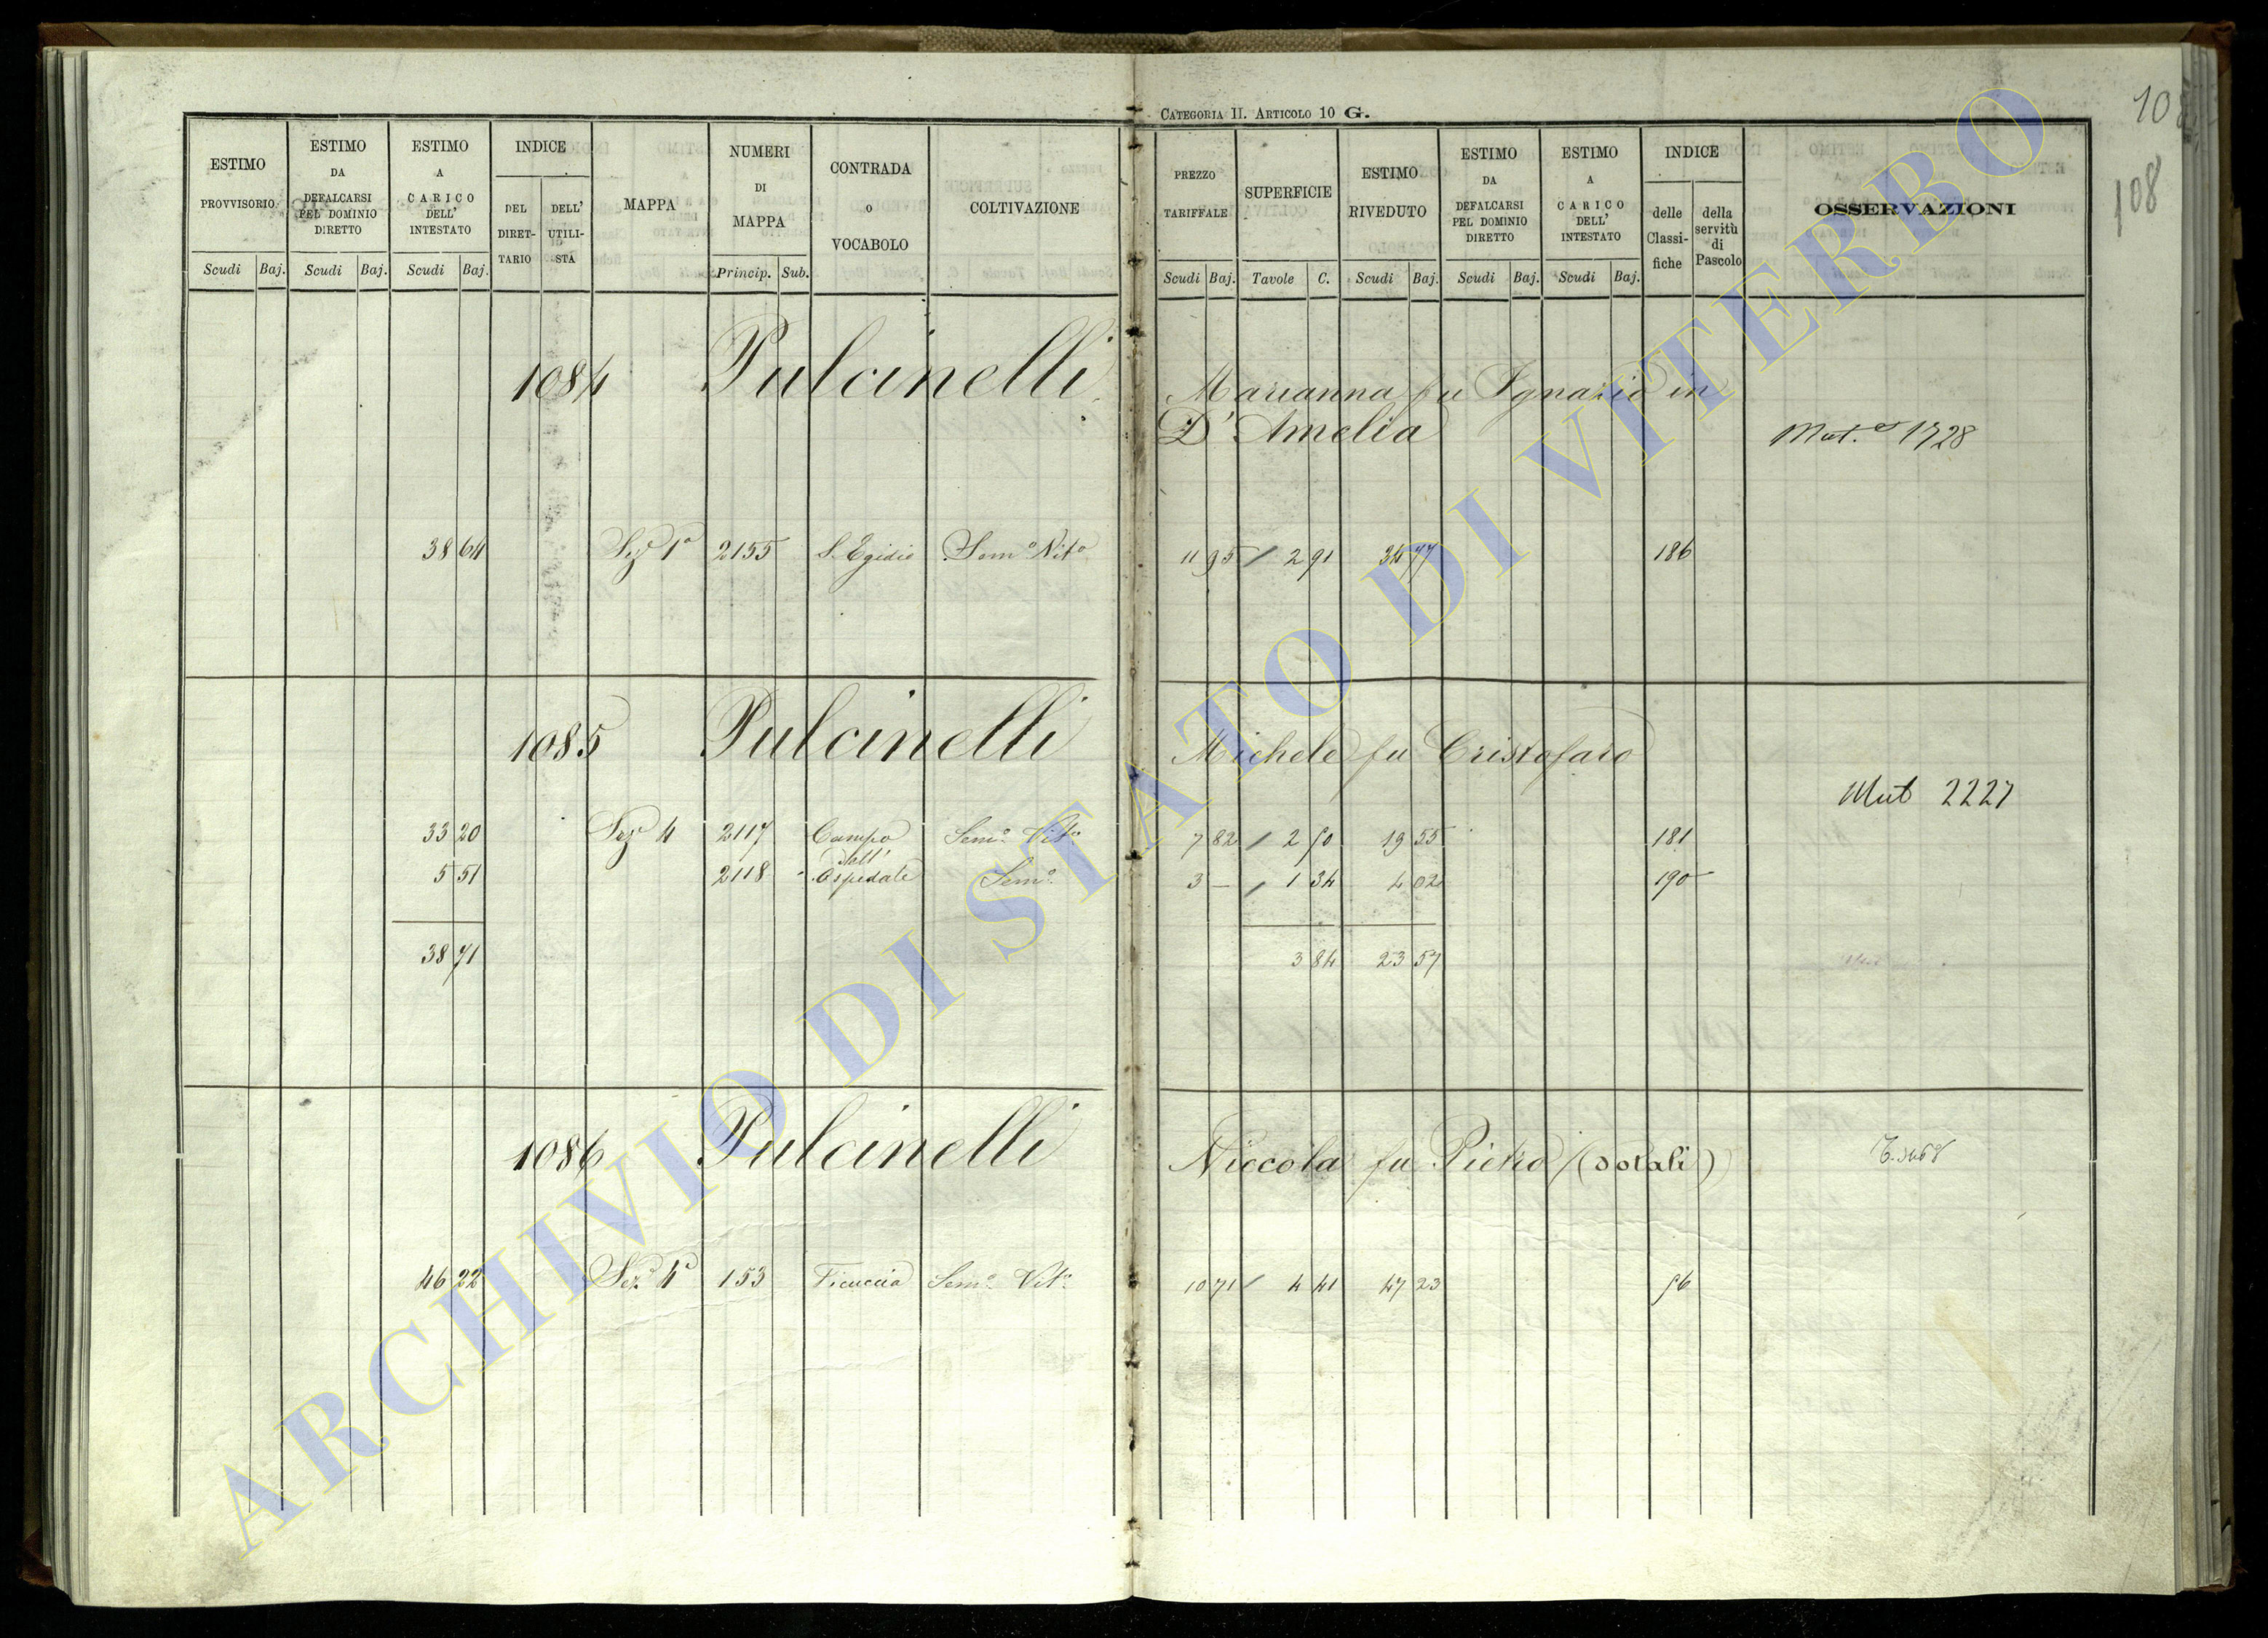 108
108
CATEGORIA II. ARTICOLO 10 G.
ESTIMO PROVVISORIO
Scudi Baj.
ESTIMO DA DEFALCARSI PEL DOMINIO DIRETTO
Scudi Baj.
ESTIMO A CARICO DELL' INTESTATO
Scudi Baj.
INDICE
DEL DIRETTARIO
DELL' UTILISTA
MAPPA
NUMERI DI MAPPA
Princip. Sub.
CONTRADA O VOCABOLO
COLTIVAZIONE
PREZZO TARIFFALE
Scudi Baj.
SUPERFICIE
Tavole C.
ESTIMO RIVEDUTO
Scudi Baj.
ESTIMO DA DEFALCARSI PEL DOMINIO DIRETTO
Scudi Baj.
ESTIMO A CARICO DELL' INTESTATO
Scudi Baj.
INDICE
delle Classifiche
della servitù di Pascolo
OSSERVAZIONI
1084 Pulcinelli Marianna fu Ignazio in
D'Amelia
Mut. 1728
38 64 Sez 1a 2155 S. Egidio Sem.o Vit.o 11 95 / 2 91 34 77 186
1085 Pulcinelli Michele fu Cristofaro
Mut 2227
33 20 Sez 4 2117 Campo Sem.o Vit.o 7 82 / 2 50 19 55 181
dell'
5 51 2118 Ospedale Sem.o 3 — / 1 34 4 02 190
38 71 3 84 23 57
1086 Pulcinelli Niccola fu Pietro (dotali)
46 22 Sez.a 4a 153 Ficuccia Sem.o Vit.o 10 71 / 4 41 47 23 56
ARCHIVIO DI STATO DI VITERBO